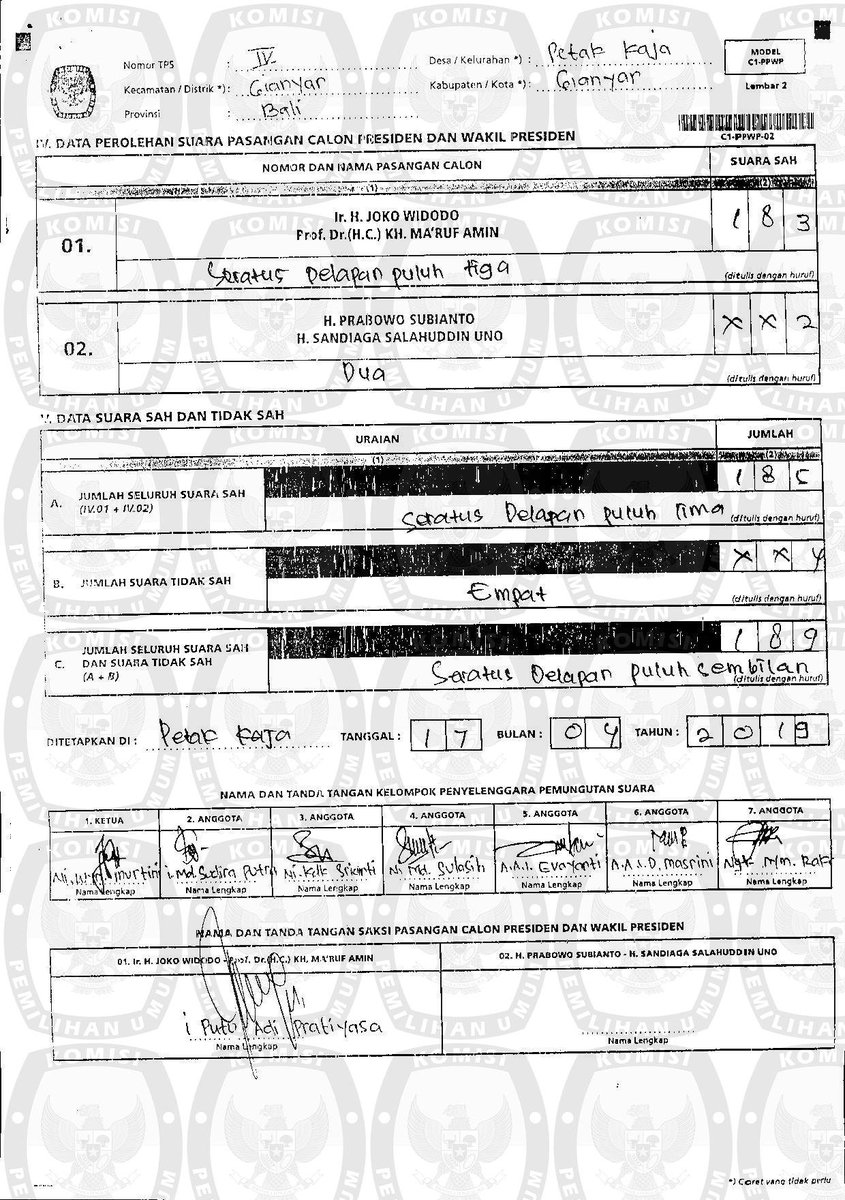 MODEL
C1-PPWP
Lembar 2
Nomor TPS : IV
Desa / Kelurahan *) : Petak Kaja
Kecamatan / Distrik *) : Gianyar
Kabupaten / Kota *) : Gianyar
Provinsi : Bali
C1-PPWP-02
IV. DATA PEROLEHAN SUARA PASANGAN CALON PRESIDEN DAN WAKIL PRESIDEN
NOMOR DAN NAMA PASANGAN CALON SUARA SAH
(1) (2)
01. Ir. H. JOKO WIDODO
Prof. Dr.(H.C.) KH. MA'RUF AMIN 1 8 3
Seratus Delapan puluh tiga (ditulis dengan huruf)
02. H. PRABOWO SUBIANTO
H. SANDIAGA SALAHUDDIN UNO X X 2
Dua (ditulis dengan huruf)
V. DATA SUARA SAH DAN TIDAK SAH
URAIAN JUMLAH
(1) (2)
A. JUMLAH SELURUH SUARA SAH
(IV.01 + IV.02) 1 8 5
Seratus Delapan puluh lima (ditulis dengan huruf)
B. JUMLAH SUARA TIDAK SAH X X 4
Empat (ditulis dengan huruf)
C. JUMLAH SELURUH SUARA SAH
DAN SUARA TIDAK SAH
(A + B) 1 8 9
Seratus Delapan puluh sembilan (ditulis dengan huruf)
DITETAPKAN DI : Petak Kaja TANGGAL : 1 7 BULAN : 0 4 TAHUN : 2 0 1 9
NAMA DAN TANDA TANGAN KELOMPOK PENYELENGGARA PEMUNGUTAN SUARA
1. KETUA 2. ANGGOTA 3. ANGGOTA 4. ANGGOTA 5. ANGGOTA 6. ANGGOTA 7. ANGGOTA
Ni murtini I Md. Sudira Putra Ni. Kdk Srianti Ni Md. Sulasih A.A.I. Evayanti A.A.I.D. Masrini Ngk Nym. Raka
Nama Lengkap Nama Lengkap Nama Lengkap Nama Lengkap Nama Lengkap Nama Lengkap Nama Lengkap
NAMA DAN TANDA TANGAN SAKSI PASANGAN CALON PRESIDEN DAN WAKIL PRESIDEN
01. Ir. H. JOKO WIDODO - Prof. Dr.(H.C.) KH. MA'RUF AMIN 02. H. PRABOWO SUBIANTO - H. SANDIAGA SALAHUDDIN UNO
I Putu Adi Pratiyasa
Nama Lengkap Nama Lengkap
*) Coret yang tidak perlu
KOMISI PEMILIHAN UMUM